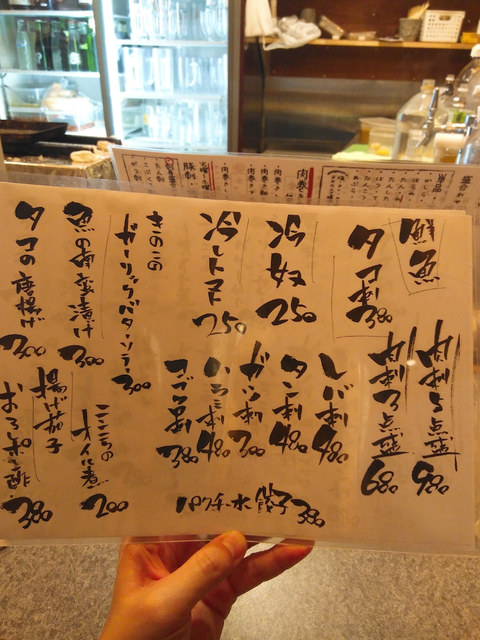 鮮魚
タコ刺 380
冷奴 250
冷しトマト 250
きのこの
ガーリックバターソテー 300
魚の南蛮漬け 300
タコの唐揚げ 300
肉刺5点盛 980
肉刺3点盛 680
レバ刺 480
タン刺 480
ガツ刺 300
ハラミ刺 480
コブクロ刺 380
パクチー水餃子 380
ニンニクの
オイル煮 200
揚げ茄子
おろしポン酢 380
肉巻き
単品
豚刺